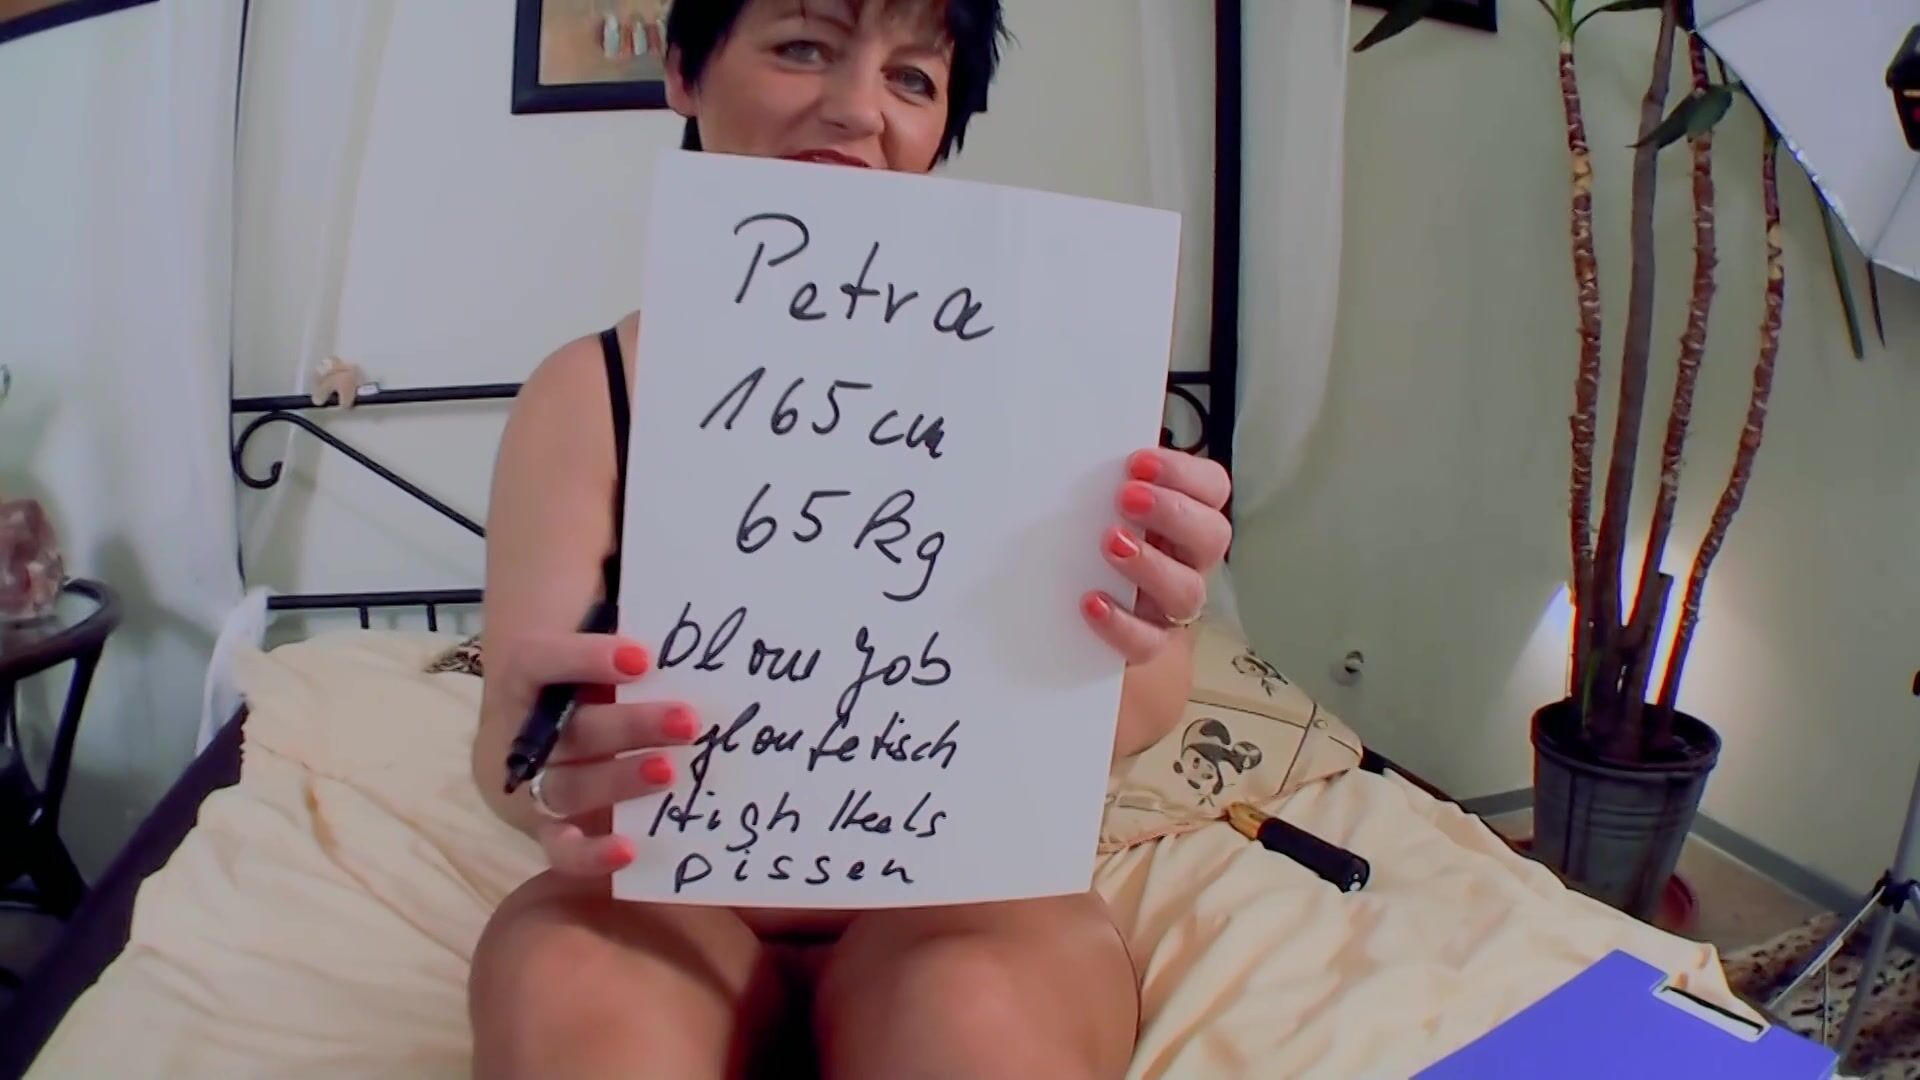 Petra
165 cm
65 kg
Blow Job
High Heels
pissen